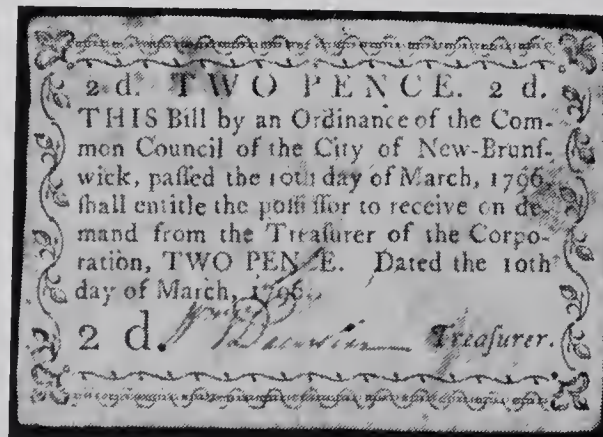 2 d. TWO PENCE. 2 d.
THIS Bill by an Ordinance of the Com-
mon Council of the City of New-Brunſ-
wick, paſſed the 10th day of March, 1796
ſhall entitle the poſſeſſor to receive on de-
mand from the Treaſurer of the Corpo-
ration, TWO PENCE. Dated the 10th
day of March, 1796.
2 d. Treaſurer.